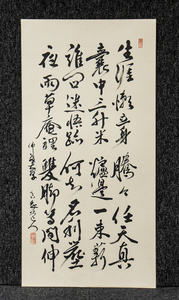 生涯懶立身騰々任天真
囊中三升米爐邊一束薪
誰問迷悟跡何知名利塵
夜雨草庵裡雙脚等閑伸